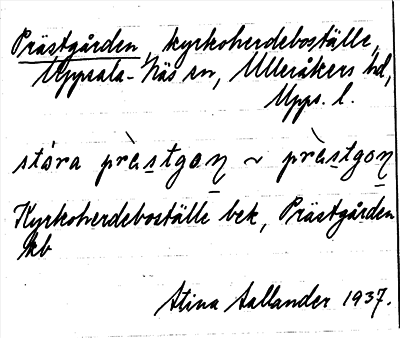 Prästgården, kyrkoherdeboställe,
Uppsala-Näs sn, Ulleråkers hd,
Upps. l.
stóra prὲstgoꞑ ~ prὲstgoꞑ
Kyrkoherdeboställe bek, Prästgården
kb
Stina Aallander 1937.